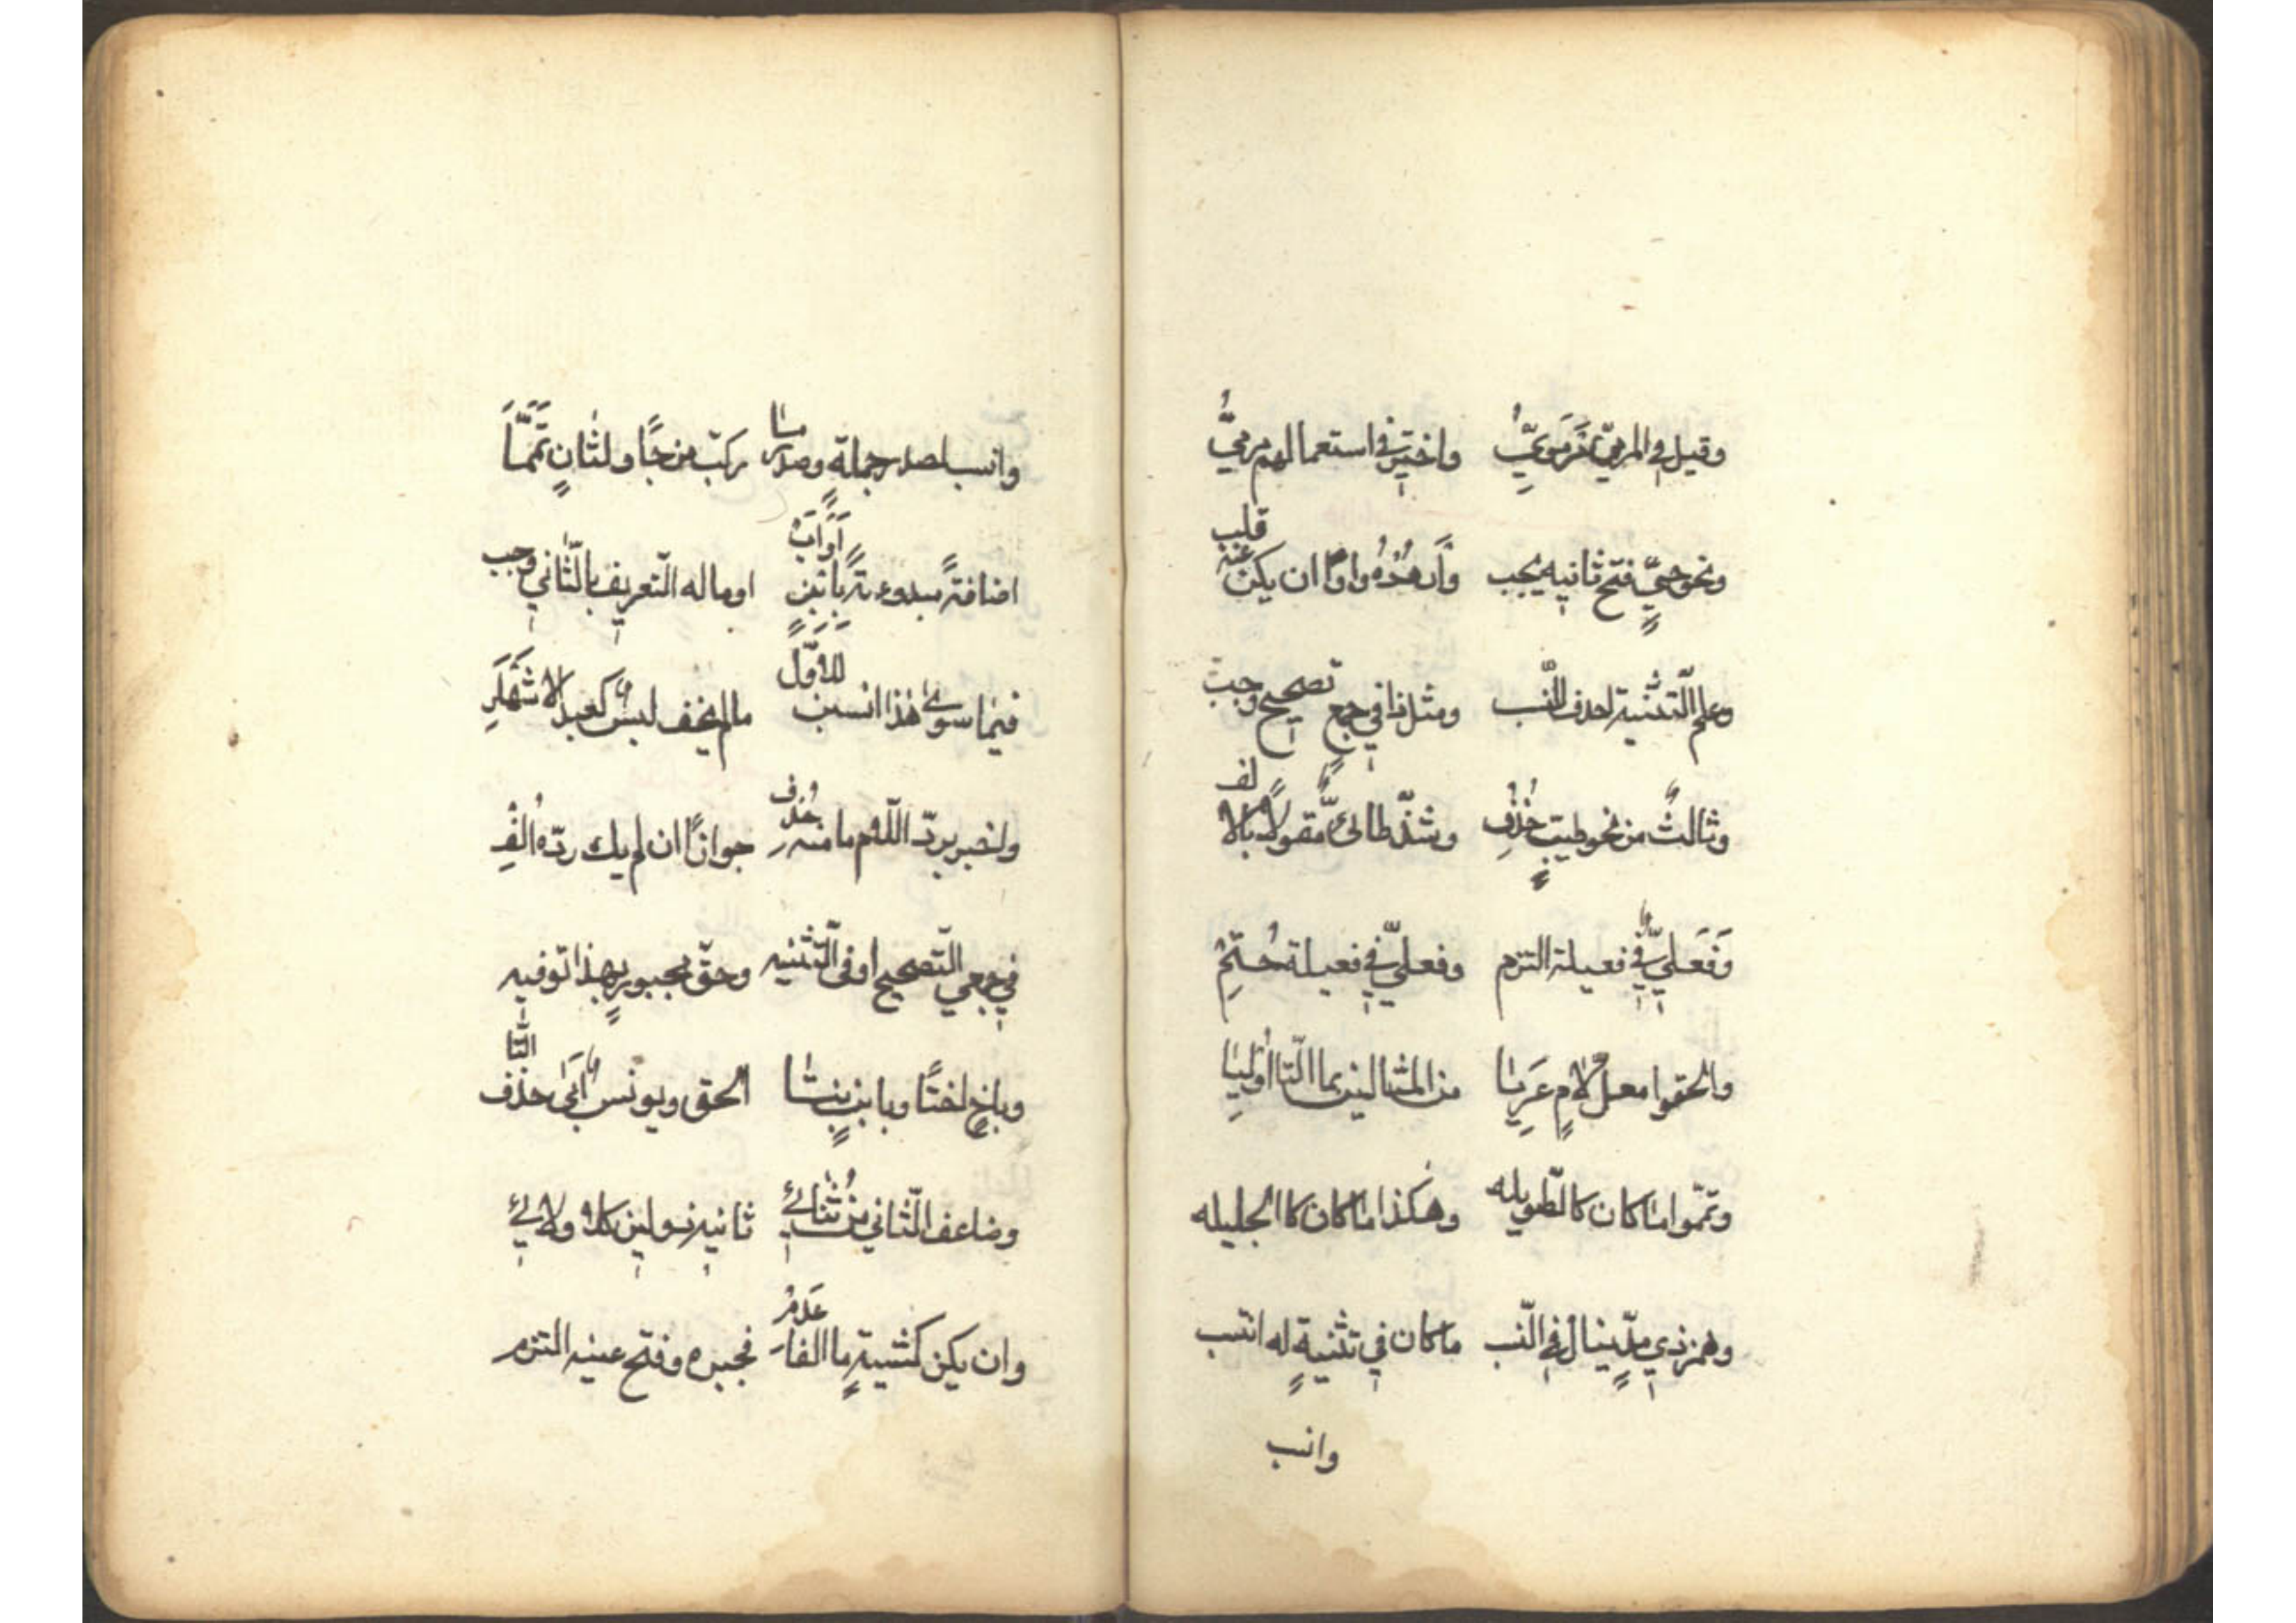 وقيل في المرميّ مَرمَويُّ واختير في استعمالهم مرميُّ
ونحو حيٍّ فتح ثانيه يجب وارددْهُ واوًا ان يكن عنه قلب
وعلم التّثنية احذف للنّسب ومثل ذا في جمع تصحيح وجب
وثالثٌ من نحو طيبٍ حُذِف وشذّ طائيٌّ مقولًا بالالف
وَفَعَليٌّ في فعيلة التزم وفعليٌّ في فعيلة حُتِمْ
والحقوا معلّ لامٍ عَرِيَا من المثالين بما التّا اُولِيَا
وتمّموا ما كان كالطّويله وهكذا ما كان كالجليله
وهمز ذي مدٍّ ينال في النّسب ما كان في تثنيةٍ له انتسب
وانسب
وانسب لصدر جملةٍ وصدر ما ركّب مزجًا ولثانٍ تَمَّمَا
اضافةً مبدوءةً بابنٍ اَوَ اَبْ او ما له التّعريف بالثّاني وجب
فيما سوى هذا انسبن للاوّل ما لم يخف لبسٌ كعبد الاشهلِ
واجبر بردّ اللّام ما منه حُذف جوازًا ان لم يك ردّه اُلِفْ
في جمعي التّصحيح او في التّثنيه وحقّ مجبورٍ بهذا توفيه
وباخٍ اختًا وبابنٍ بنتا الحق ويونسٌ اَبَى حذف التّا
وضاعف الثّاني من ثُنائي ثانيه ذو لين كلا ولائي
وان يكن كشيةٍ ما الفا عَدِمْ فجبره وفتح عينه التزم